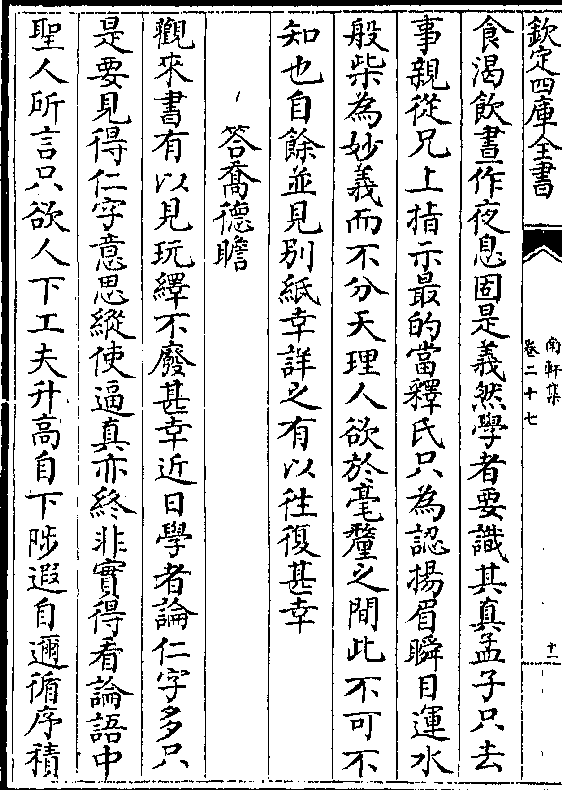 欽定四庫全書
南軒集
卷二十七
十二
食渴飲晝作夜息固是義然學者要識其真孟子只去
事親從兄上指示最的當釋氏只為認揚眉瞬目運水
般柴為妙義而不分天理人欲於毫釐之間此不可不
知也自餘並見别紙幸詳之有以徃復甚幸
答喬德瞻
觀來書有以見玩繹不廢甚幸近日學者論仁字多只
是要見得仁字意思縱使逼真亦終非實得看論語中
聖人所言只欲人下工夫升高自下陟遐自邇循序積